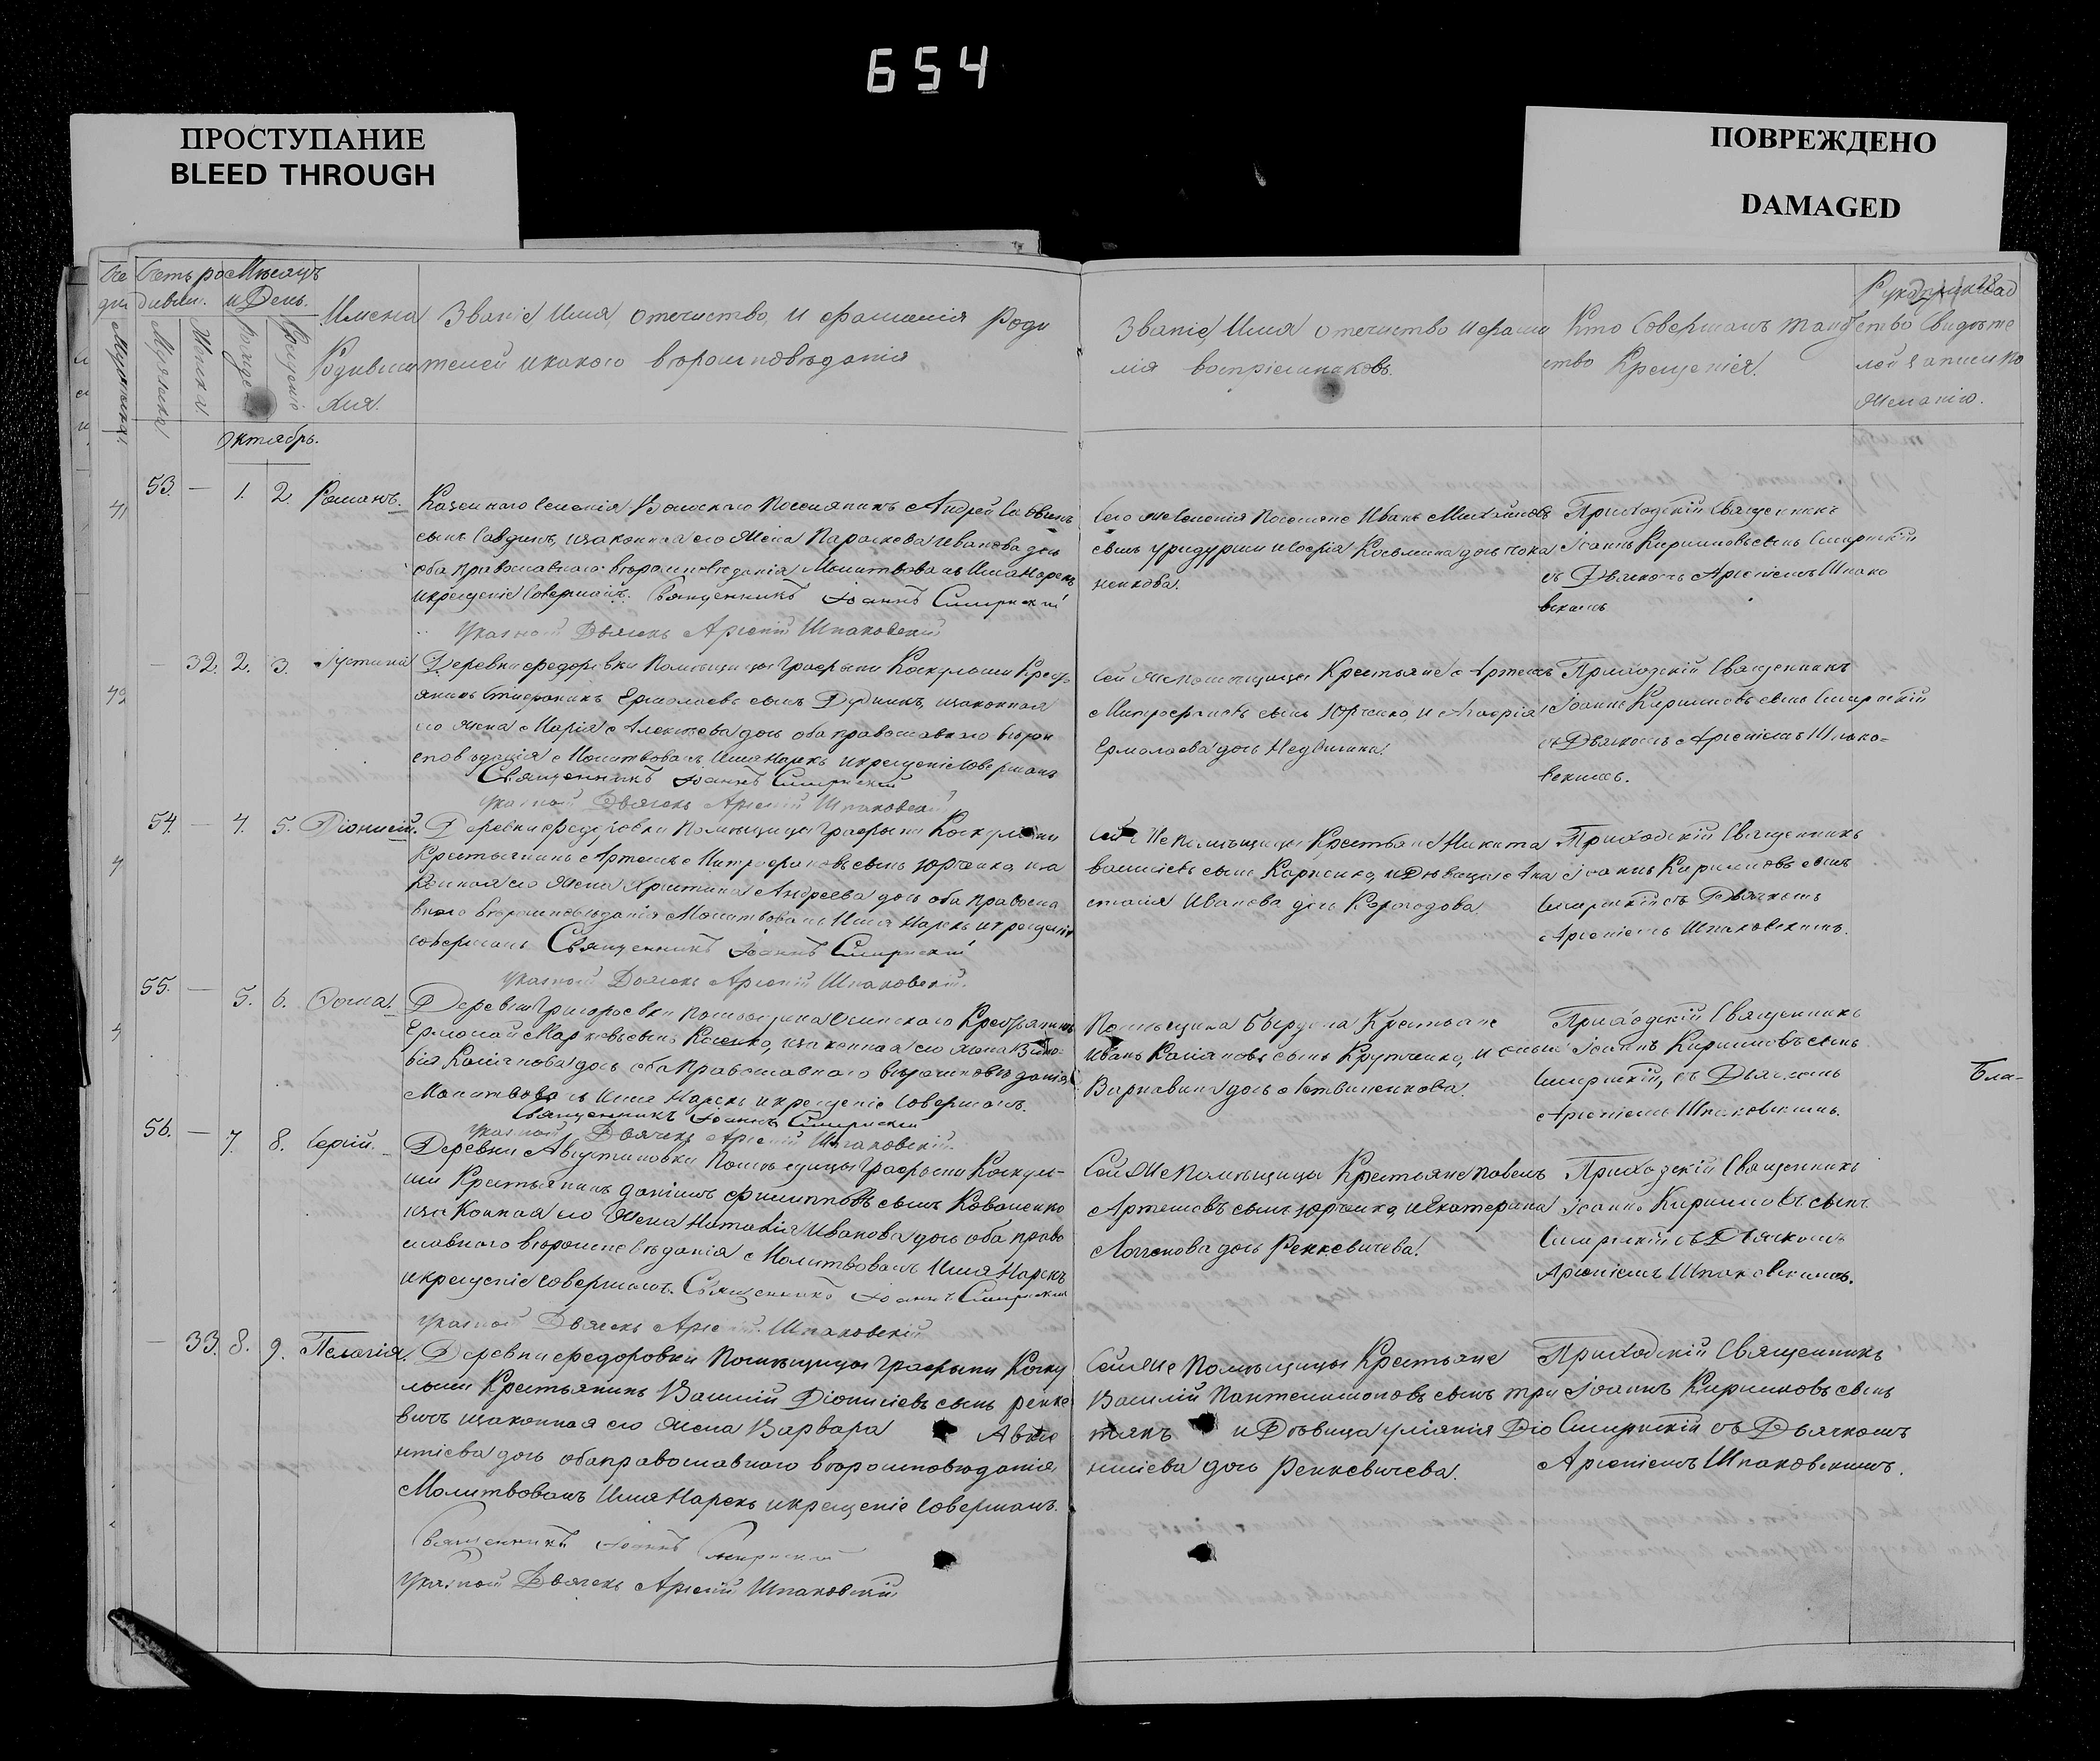 654
ПРОСТУПАНИЕ
BLEED THROUGH
ПОВРЕЖДЕНО
DAMAGED
Счетъ родивш. Мѣсяцъ и День.
Мужеска
Женска
Рожде
Крещеніе
Имена Родившихся.
Званіе Имя, отечиство, и фамилія Роди
телей икакого вѣроисповѣданія
Званіе Имя отечиство ифами
лія воспріемниковъ.
Кто Совершалъ таин
ство Крещенія.
Рукоприклад
ство Свидѣте
лей записи по
желанію.
Октябрь.
53. — 1. 2. Романъ.
Казеннаго Селенія Поселянинъ Андрей Саввинъ
сынъ Савдинъ, изаконная его Жена Параскева Иванова дочь
оба православнаго вѣроисповѣданія Молитвовалъ Имя Нарекъ
икрещеніе Совершалъ. Священникъ Іоаннъ Смирнский
Указной Дьячекъ Арсеній Шпаковскій
Сего же Селенія Поселяне Иванъ Михайловъ
сынъ иСофія Косьмина дочь
ненкова.
Приходскій Священникъ
Іоаннъ Кирилловъ сынъ Смирнскій
съ Дьячкомъ Арсеніемъ Шпако
вскимъ
— 32. 2. 3. Іустина
Деревни Федоровки Помѣщицы Графыни Коскульши Крестья
янинъ Ермолаевъ сынъ Дудникъ, изаконная
его жена Марія Алексѣева дочь оба православнаго вѣрои
сповѣданія Молитвовалъ Имя Нарекъ икрещеніе Совершалъ
Священникъ Іоаннъ Смирнский
Указной Дьячекъ Арсеній Шпаковскій
Сей же помѣщицы Крестьяне Артемъ
Митрофановъ сынъ Юрченко, и Агафія
Ермолаева дочь Недвигина.
Приходскій Священникъ
Іоаннъ Кирилловъ сынъ Смирнскій
съ Дьячкомъ Арсеніемъ Шпако-
вскимъ.
54. — 4. 5. Діонисій.
Деревни Федоровки Помѣщицы Графыни Коскульши
Крестьянинъ Артемъ Митрофановъ сынъ Юрченко, иза
конная его Жена Христина Андреева дочь оба правосла
внаго вѣроисповѣданія Молитвовалъ Имя Нарекъ икрещеніе
совершалъ Священникъ Іоаннъ Смирнский
Указной Дьячекъ Арсеній Шпаковскій.
Сей же Помѣщицы Крестьяне Никита
Василіевъ сынъ Карпенко, иДѣвица Ана
стасія Иванова дочь Карогодова.
Приходскій Священникъ
Іоаннъ Кирилловъ сынъ
Смирнскій съ Дьячкомъ
Арсеніемъ Шпаковскимъ.
55. — 5. 6. Фома.
Деревни Григоровки помѣщика Крестьянинъ
Ермолай Марковъ сынъ изаконная его жена
дочь оба Православнаго вѣроисповѣданія
Молитвовалъ Имя Нарекъ икрещеніе Совершалъ.
Священникъ Іоаннъ Смирнский
Указной Дьячекъ Арсеній Шпаковскій.
Помѣщика Крестьяне
Иванъ Касіановъ сынъ Крутченко, и
Варнавина дочь Литвиненкова.
Приходскій Священникъ
Іоаннъ Кирилловъ сынъ
Смирнскій, съ Дьячкомъ
Арсеніемъ Шпаковскимъ.
Бла-
56. — 7. 8. Сергій.
Деревни Августиновки Помѣщицы Графыни Коскуль-
ши Крестьянинъ Даніилъ Филипповъ сынъ Коваленко
изаконная его Жена Наталія Иванова дочь оба право
славнаго вѣроисповѣданія Молитвовалъ Имя Нарекъ
икрещеніе совершалъ. Священникъ Іоаннъ Смирнский
Указной Дьячекъ Арсеній Шпаковскій
Сей Же Помѣщицы Крестьяне Павелъ
Артемовъ сынъ Юрченко, иЕкатерина
Логгинова дочь Ренкевичева.
Приходскій Священникъ
Іоаннъ Кирилловъ сынъ
Смирнскій съ Дьячкомъ
Арсеніемъ Шпаковскимъ.
— 33. 8. 9. Пелагія.
Деревни Федоровки Помѣщицы Графыни Коску
льши Крестьянинъ Василій Діонисіевъ сынъ Ренке
вичъ изаконная его Жена Варвара Авксе
нтіева дочь оба православнаго вѣроисповѣданія,
Молитвовалъ Имя Нарекъ икрещеніе Совершалъ.
Священникъ Іоаннъ Смирнский
Указной Дьячекъ Арсеній Шпаковскій
Сей Же Помѣщицы Крестьяне
Василій Пантелимоновъ сынъ Три
тякъ иДѣвица Уліянія Діо
нисіева дочь Ренкевичева.
Приходскій Священникъ
Іоаннъ Кирилловъ сынъ
Смирнскій съ Дьячкомъ
Арсеніемъ Шпаковскимъ.